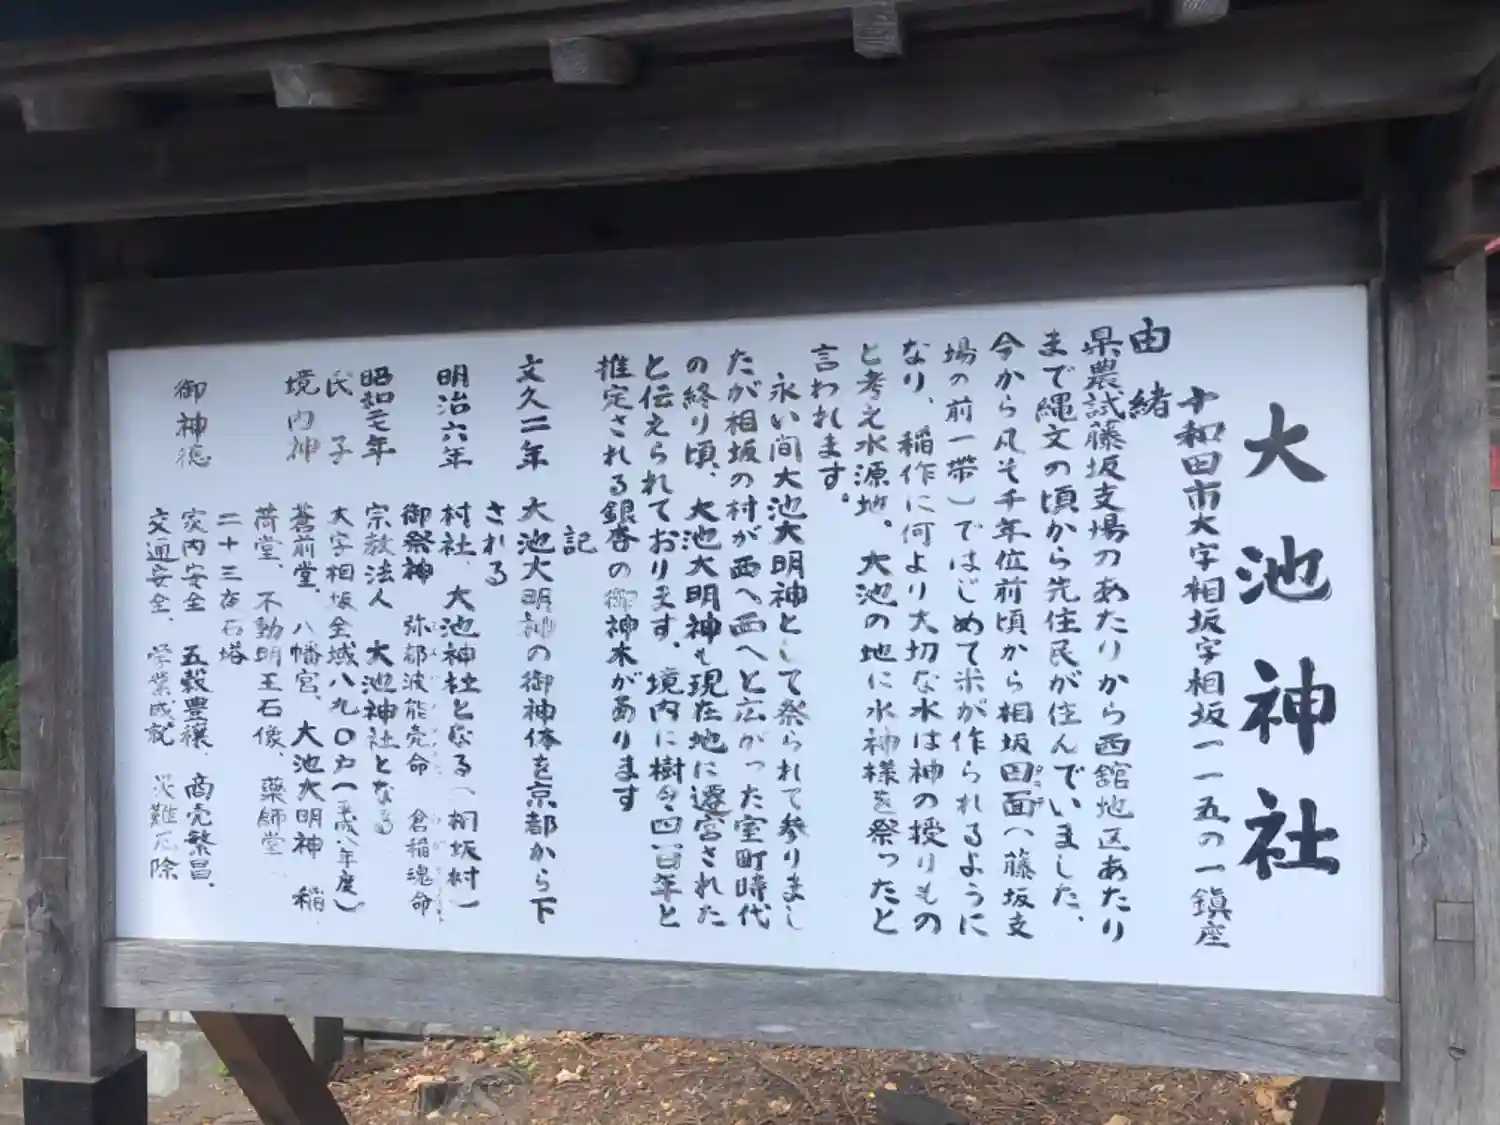 大池神社
十和田市大字相坂字相坂一一五の一鎮座
由緒
県農試藤坂支場のあたりから西舘地区あたり
まで縄文の頃から先住民が住んでいました、
今から凡そ千年位前頃から相坂田面(藤坂支
場の前一帯)ではじめて米が作られるように
なり、稲作に何より大切な水は神の授りもの
と考え水源地、大池の地に水神様を祭ったと
言われます。
永い間大池大明神として祭られて参りまし
たが相坂の村が西へ西へと広がった室町時代
の終り頃、大池大明神も現在地に遷宮された
と伝えられております、境内に樹令四百年と
推定される銀杏の御神木があります
記
文久二年 大池大明神の御神体を京都から下
される
明治六年 村社、大池神社となる(相坂村)
御祭神 弥都波能売命 倉稲魂命
昭和二年 宗教法人 大池神社となる
氏子 大字相坂全域八九〇戸(平成八年度)
境内神 蒼前堂、八幡宮、大池大明神 稲
荷堂、不動明王石像、薬師堂
二十三夜石塔
御神徳 家内安全 五穀豊穣、商売繁昌、
交通安全、学業成就 災難厄除